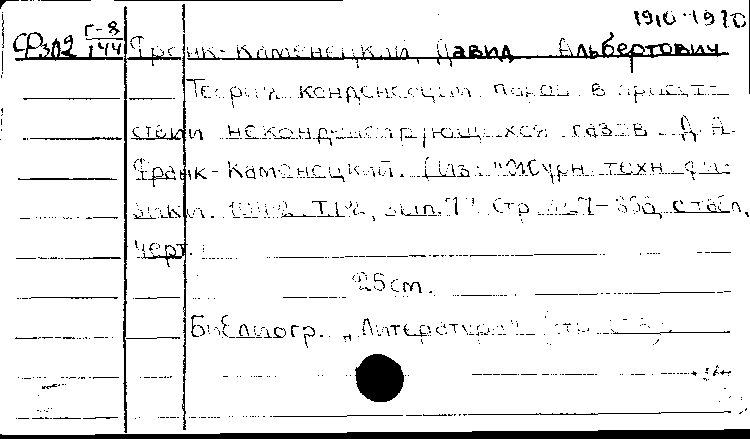 1910-1970
Г-8
144
Франк-Каменецкий, Давид Альбертович
Теория конденсации паров в присут-
ствии неконденсирующихся газов. Д. А.
Франк-Каменецкий. (Из: "Журн. техн. фи-
зики. Т.12, вып. 7" Стр. с табл.,
черт.
25 cm.
Библиогр. „Литература" (стр.